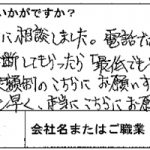 いかがですか？
に相談しました。電話で
断してもらったら「最低でも
実績制のこちらにお願いす
く早く、本当にこちらにお願
会社名またはご職業